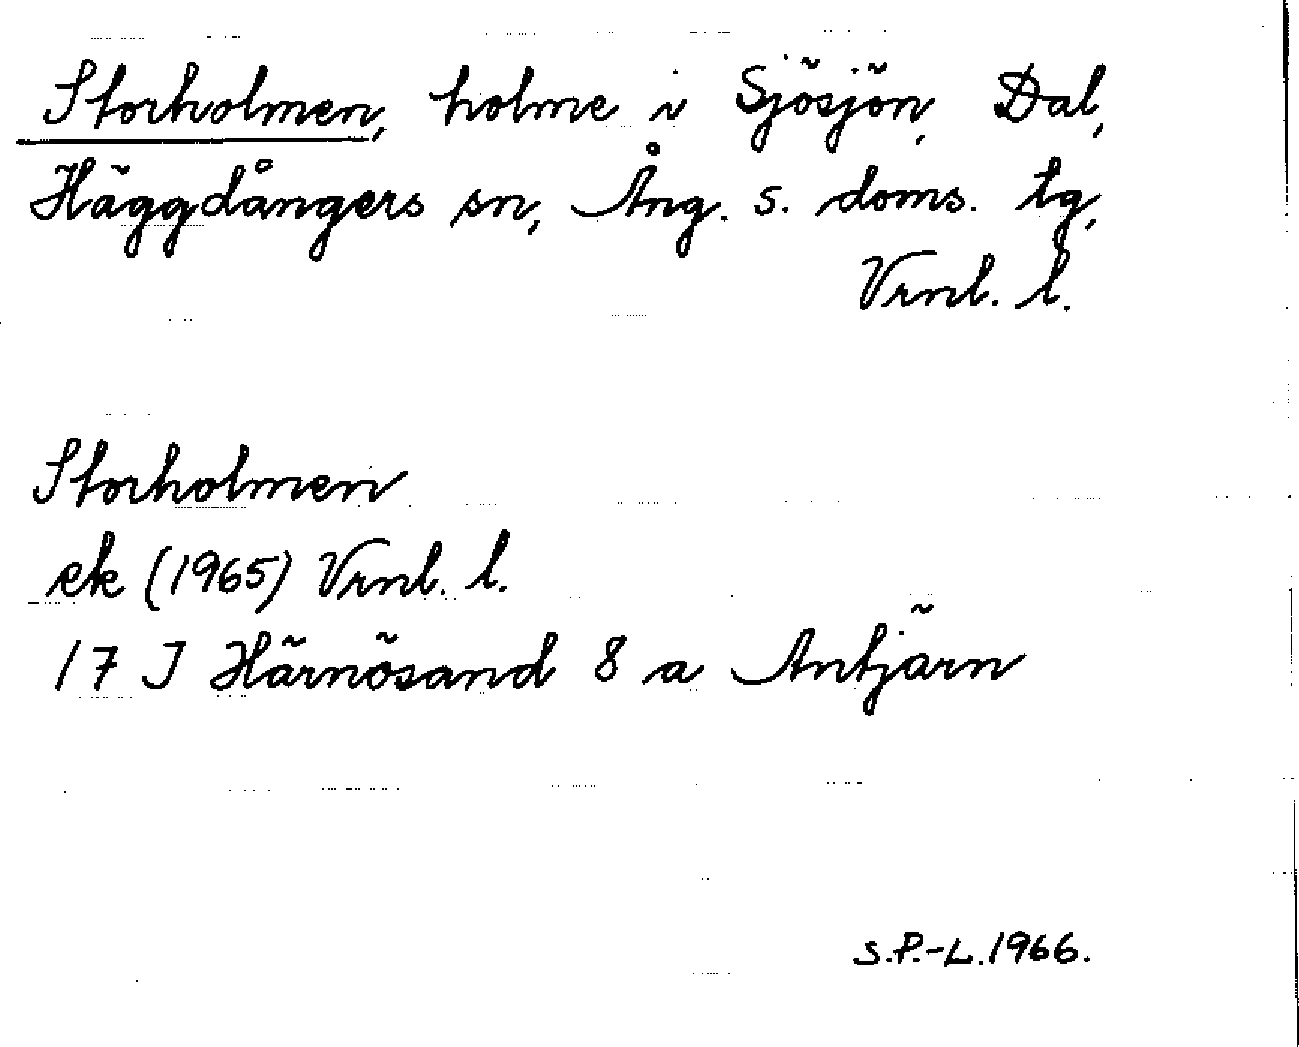 Storholmen, holme i Sjösjön, Dal,
Häggdångers sn, Ång. s. doms. tg,
Vrnl. l.
Storholmen
ek (1965) Vrnl. l.
17 J Härnösand 8 a Antjärn
S.P.-L.1966.